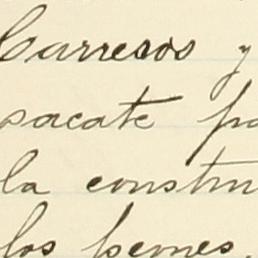 Carresos y
sacate pa
la constru
los peones,